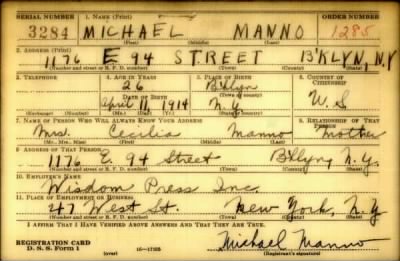 SERIAL NUMBER 1. NAME (Print) ORDER NUMBER
3284 MICHAEL MANNO 1285
(First) (Middle) (Last)
2. ADDRESS (Print)
1176 E 94 STREET B'KLYN, N.Y
(Number and street or R. F. D. number) (Town) (County) (State)
3. TELEPHONE 4. AGE IN YEARS 5. PLACE OF BIRTH 6. COUNTRY OF CITIZENSHIP
26 Bklyn
DATE OF BIRTH (Town or county) U.S
April 11, 1914 N.Y.
(Exchange) (No.) (Mo.) (Day) (Yr.) (State or country)
7. NAME OF PERSON WHO WILL ALWAYS KNOW YOUR ADDRESS 8. RELATIONSHIP OF THAT PERSON
Mrs. Cecilia Manno Mother
(Mr., Mrs., Miss) (First) (Middle) (Last)
9. ADDRESS OF THAT PERSON
1176 E. 94 Street Bklyn, N.Y.
(Number and street or R. F. D. number) (Town) (County) (State)
10. EMPLOYER'S NAME
Wisdom Press Inc.
11. PLACE OF EMPLOYMENT OR BUSINESS
47 West St. New York, N.Y
(Number and street or R. F. D. number) (Town) (County) (State)
I AFFIRM THAT I HAVE VERIFIED ABOVE ANSWERS AND THAT THEY ARE TRUE.
REGISTRATION CARD
D. S. S. Form 1 (over) 16-17105 Michael Manno
(Registrant's signature)